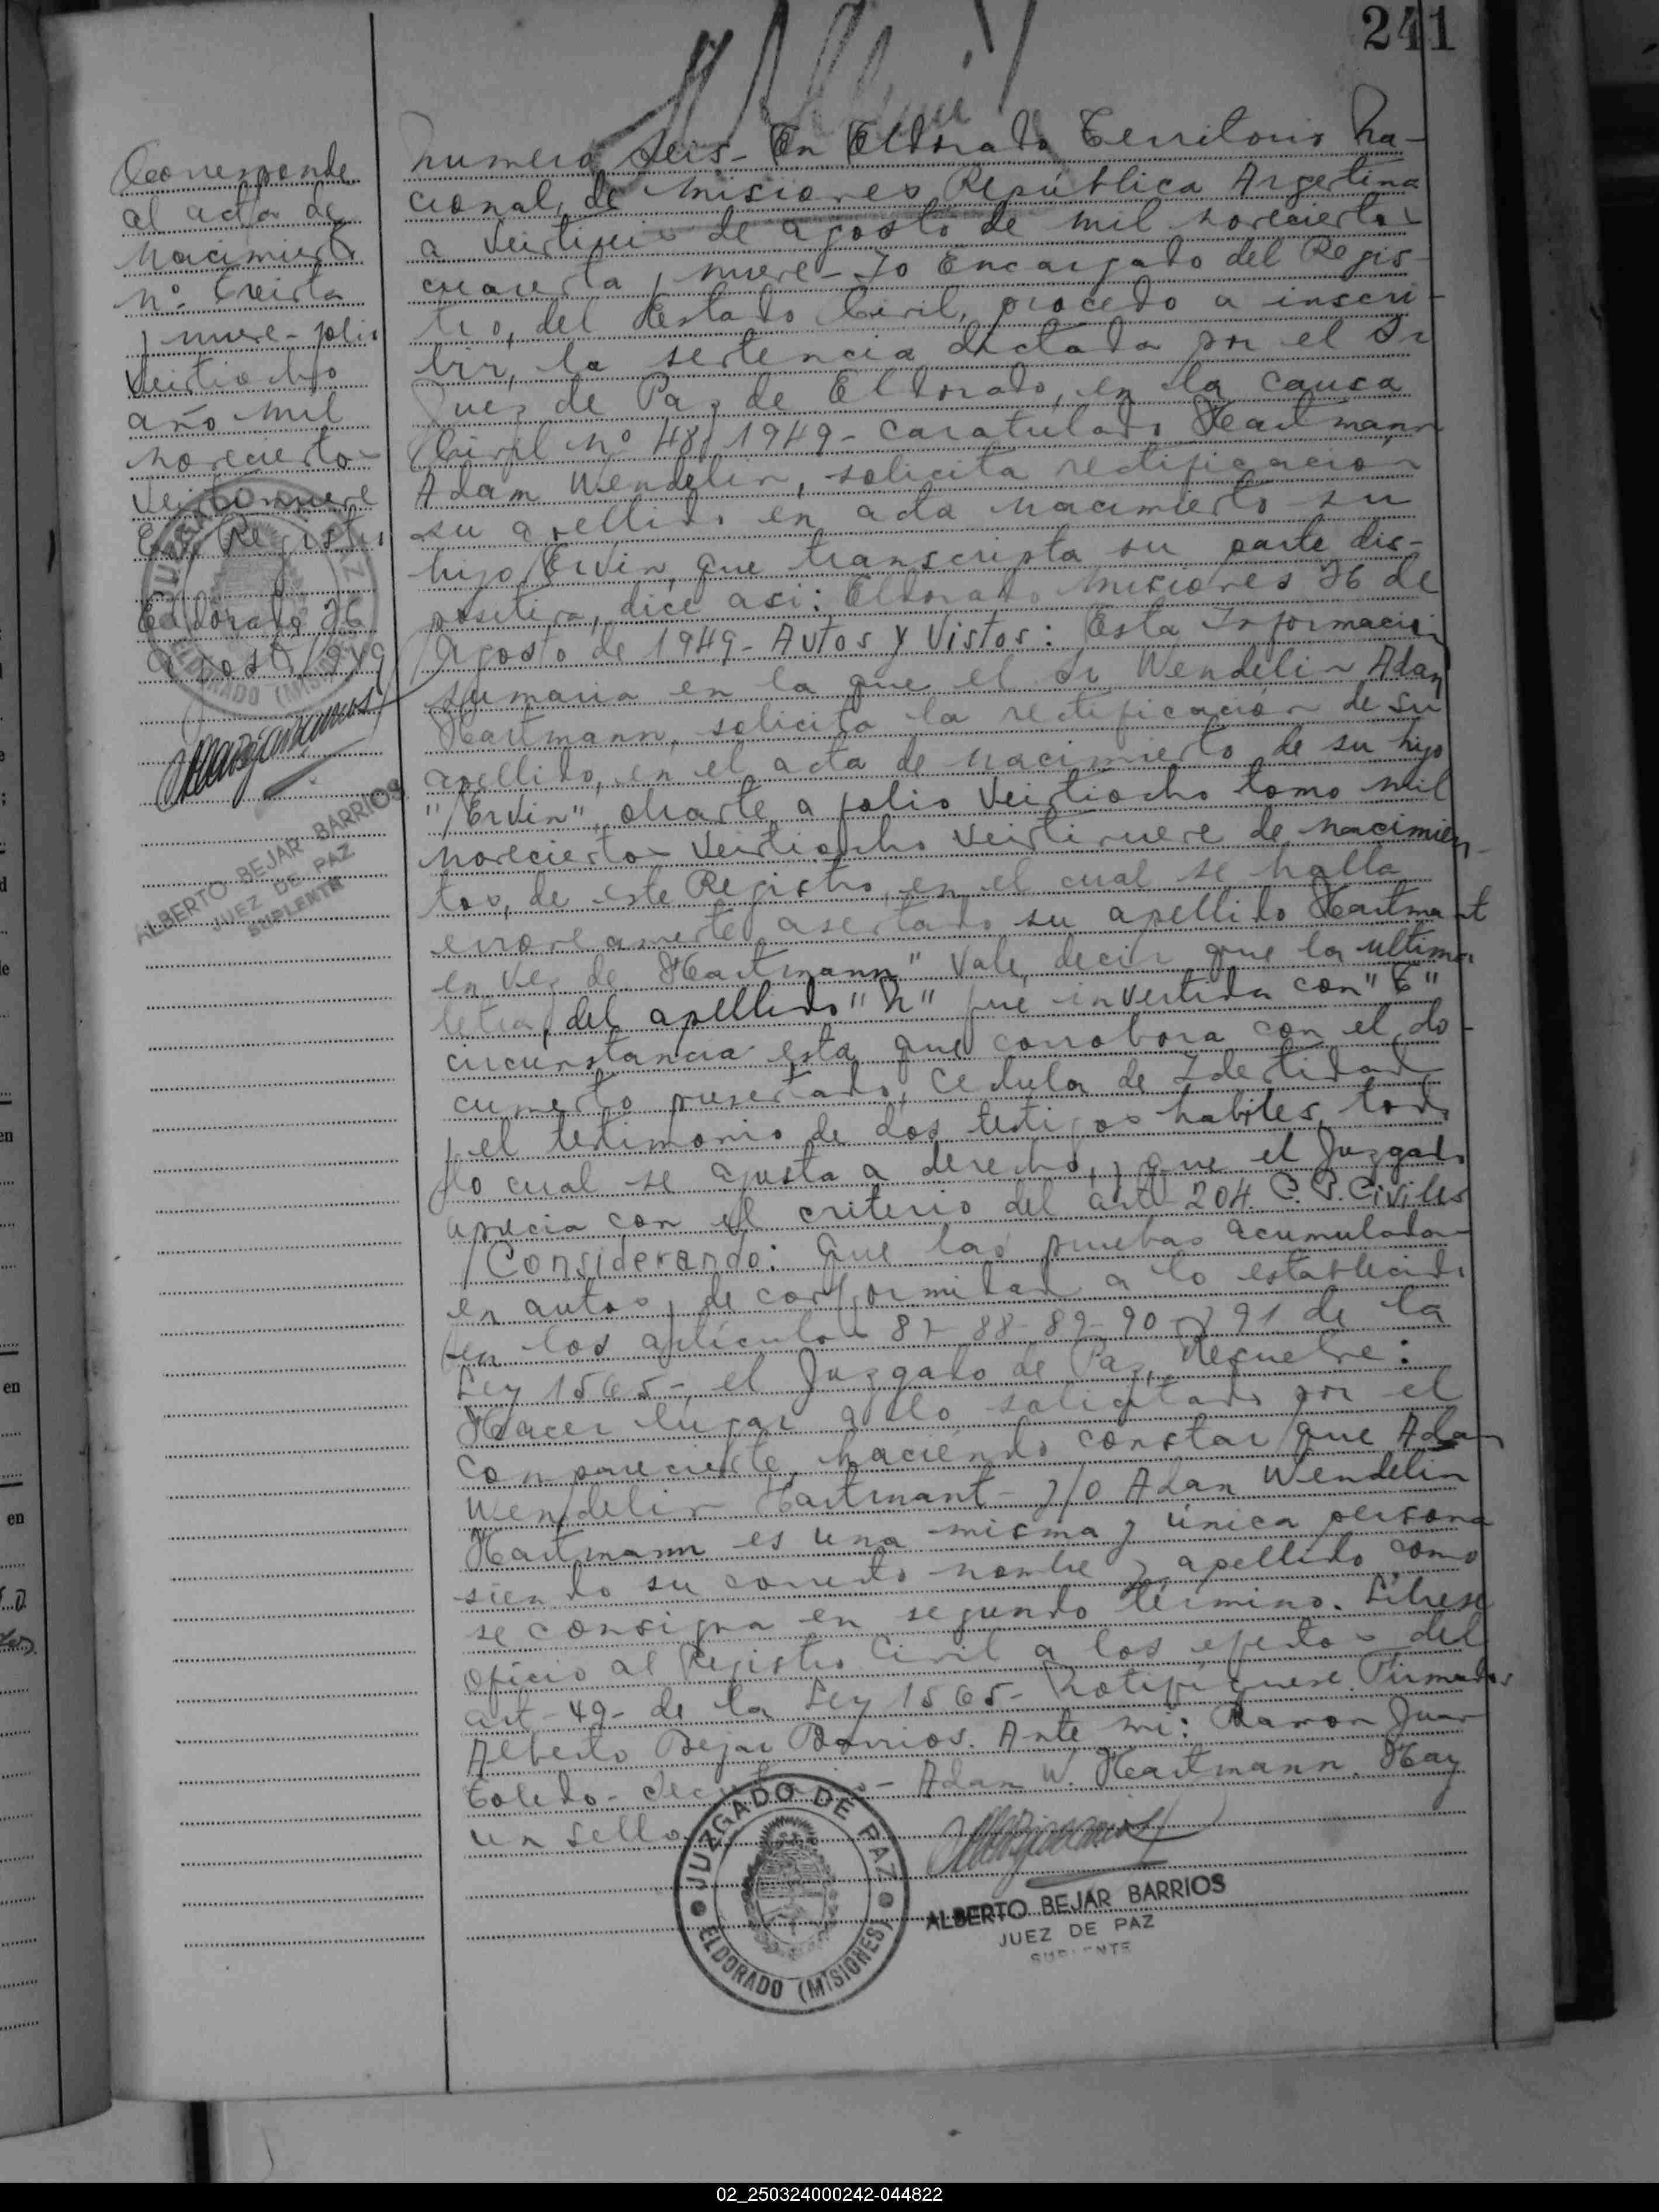 241
Corresponde
al acta de
Nacimiento
nº treinta
y nueve - folio
Veintiocho
año mil
novecientos
Veintinueve
Este Registro
Eldorado 26
Agosto 1949
JUZGADO DE PAZ
ELDORADO (MISIONES)
ALBERTO BEJAR BARRIOS
JUEZ DE PAZ
SUPLENTE
Numero Seis - En Eldorado Territorio Na-
cional, de Misiones República Argentina
a Veintiseis de agosto de mil novecientos
cuarenta y nueve - Yo Encargado del Regis-
tro, del Estado Civil, procedo a inscri-
bir, la sentencia dictada por el Sr
Juez de Paz de Eldorado, en la causa
Civil nº 48/1949 - caratulado Hartmann
Adam Wendelin, solicita rectificacion
su apellido en acta nacimiento su
hijo Ervin, que transcripta su parte dis-
positiva, dice asi: Eldorado Misiones 26 de
Agosto de 1949 - Autos y Vistos: Esta Informacion
sumaria en la que el Sr Wendelin Adan
Hartmann, solicita la rectificación de su
apellido, en el acta de nacimiento de su hijo
"Ervin", obrante a folio Veintiocho tomo mil
novecientos Veintiocho Veintinueve de nacimien-
tos, de este Registro, en el cual se halla
erroneamente asentado su apellido Hartmant
en vez de Hartmann" Vale decir que la ultima
letra, del apellido "N" fué invertida con "T"
circunstancia esta que corrobora con el do-
cumento presentado, Cedula de Identidad
y el testimonio de dos testigos habiles, todo
lo cual se ajusta a derecho, y que el Juzgado
aprecia con el criterio del art - 204. C. P. Civiles
Considerando: Que las pruebas acumuladas
en autos, de conformidad a lo establecido
en los articulos 87 - 88 - 89 - 90 - y 91 de la
Ley 1565 - el Juzgado de Paz, Resuelve:
Hacer lugar a lo solicitado por el
compareciente, haciendo constar que Adan
Wendelin Hartmant - y/o Adan Wendelin
Hartmann es una misma y única persona
siendo su correcto nombre y apellido como
se consigna en segundo término. Librese
oficio al Registro Civil a los efectos del
art - 49 - de la Ley 1565 - Notifiquese. Firmados
Alberto Bejar Barrios. Ante mi: Ramon Juan
Toledo - Secretario - Adan W. Hartmann. Hay
un sello
JUZGADO DE PAZ
ELDORADO (MISIONES)
ALBERTO BEJAR BARRIOS
JUEZ DE PAZ
SUPLENTE
02_250324000242-044822